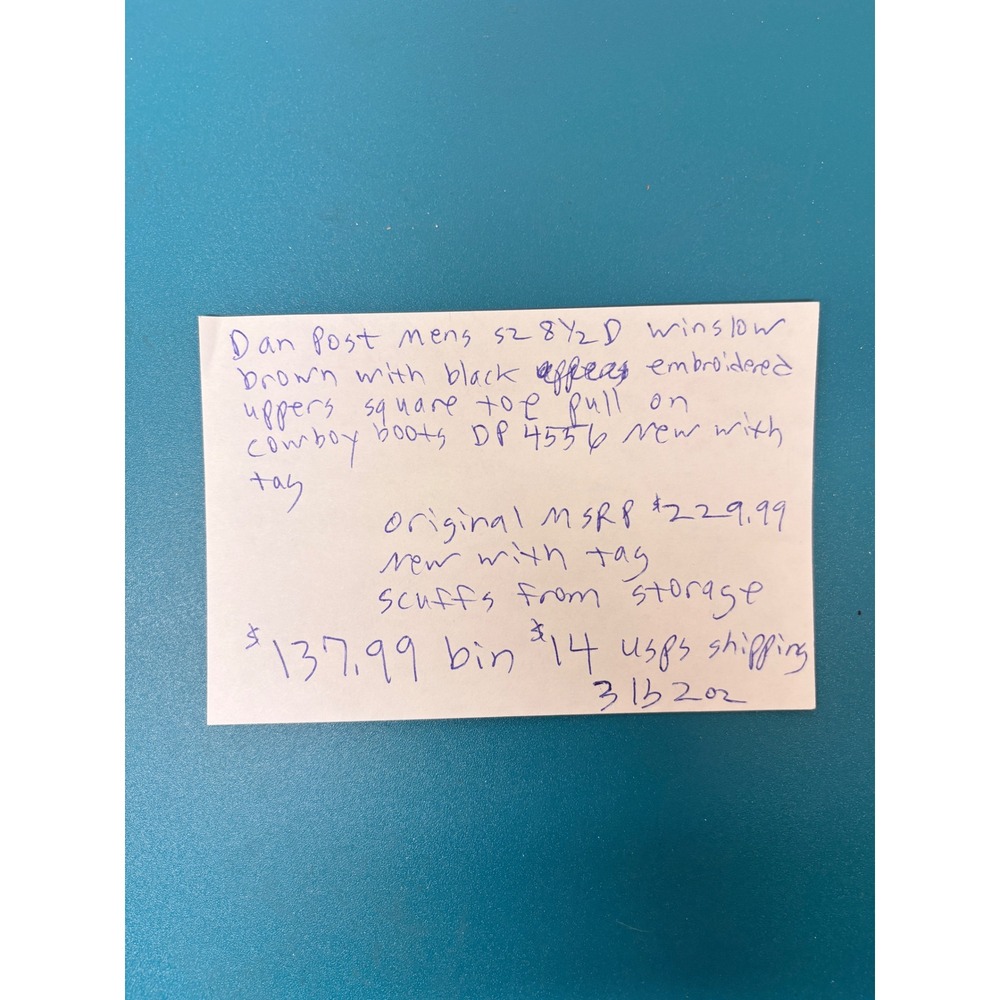 Dan Post Mens sz 8 1/2 D winslow
brown with black embroidered
uppers square toe pull on
cowboy boots DP 4556 New with
tag
original MSRP $229.99
New with tag
scuffs from storage
$137.99 bin $14 usps shipping
3 lb 2 oz